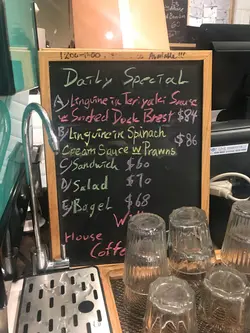 Daily Special
A/ Linguine in Teriyaki Sauce
w Smoked Duck Brest $84
B/ Linguine in Spinach
Cream Sauce w Prawns $86
C/ Sandwich $60
D/ Salad $70
E/ Bagel $68
House
Coffee